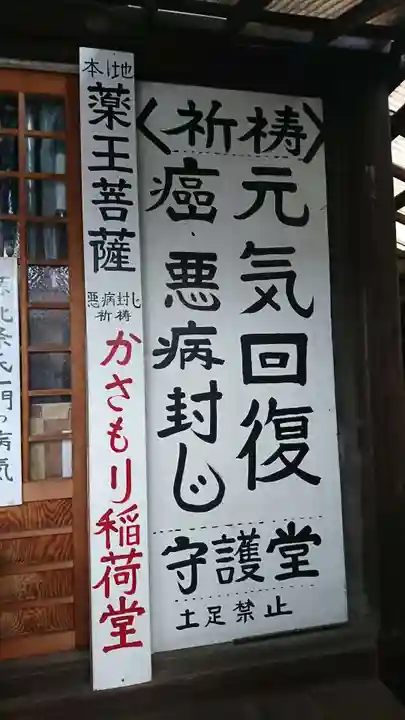 〈祈祷〉
元気回復
癌悪病封じ
守護堂
土足禁止
本地
薬王菩薩
悪病封じ
祈祷
かさもり稲荷堂
北条氏一門の病気